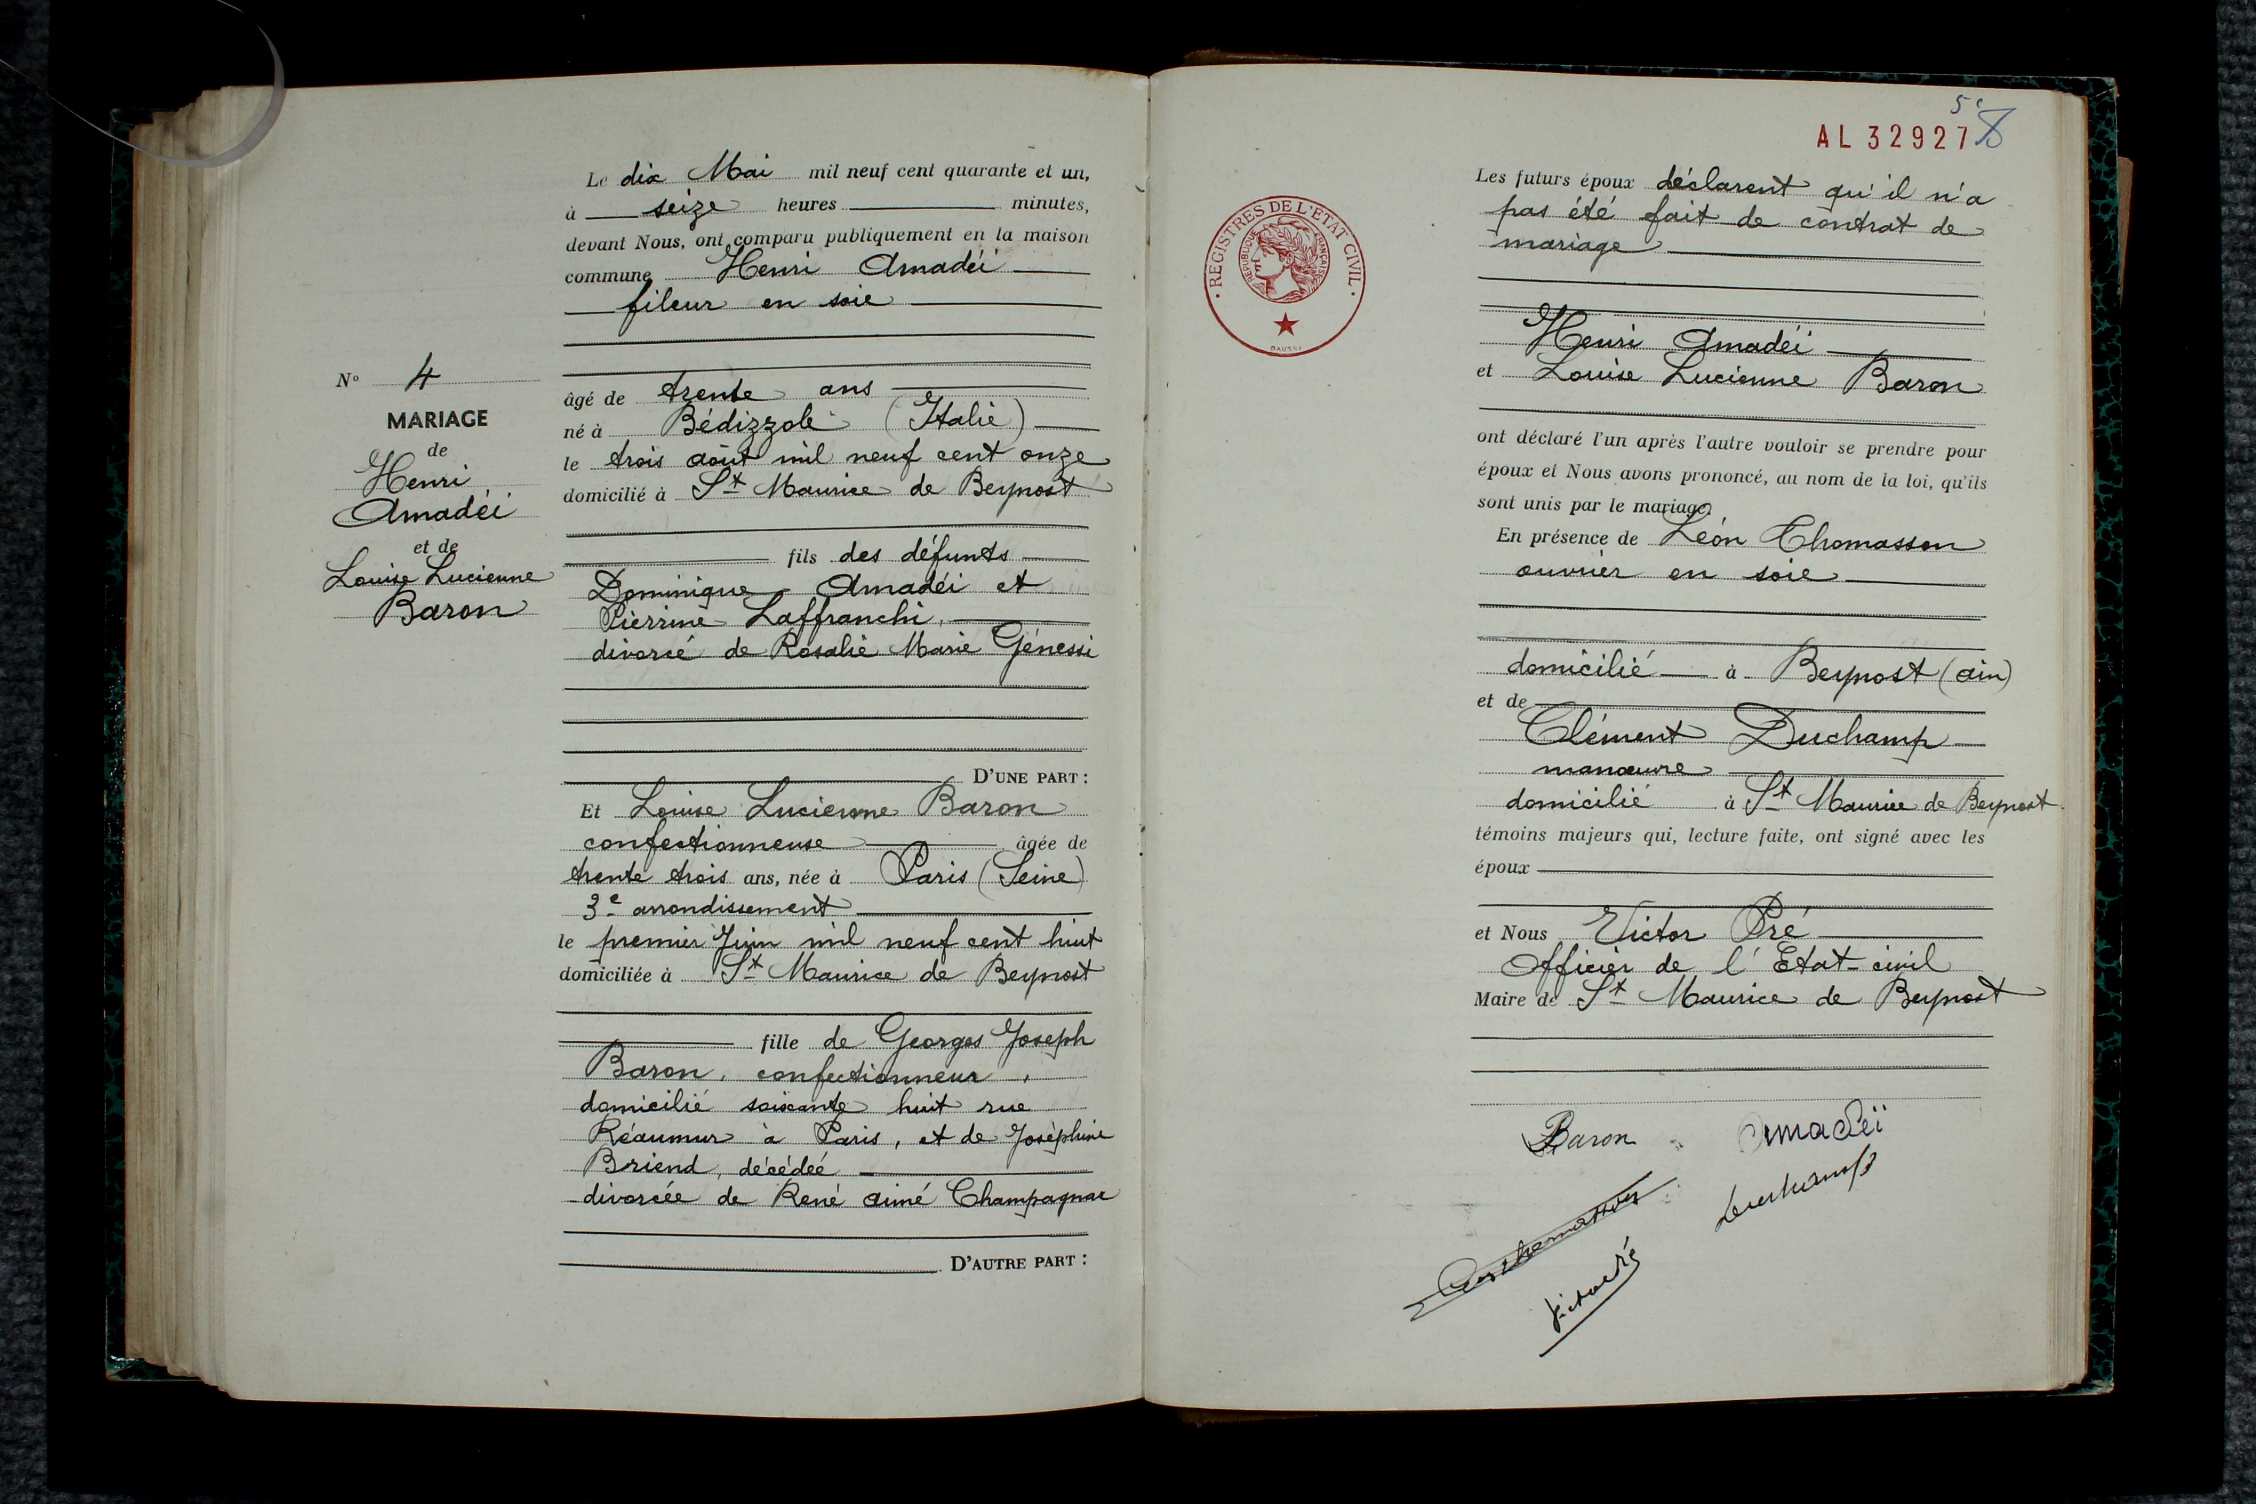 Le dix Mai mil neuf cent quarante et un,
à seize heures minutes,
devant Nous, ont comparu publiquement en la maison
commune Henri Amadéi
fileur en soie
âgé de trente ans
né à Bédizzole (Italie)
le trois août mil neuf cent onze
domicilié à St Maurice de Beynost
fils des défunts
Dominique Amadéi et
Pierrine Laffranchi,
divorcé de Rosalie Marie Génessi
D'UNE PART :
N° 4
MARIAGE
de
Henri
Amadéi
et de
Louise Lucienne
Baron
Et Louise Lucienne Baron
confectionneuse âgée de
trente trois ans, née à Paris (Seine)
3e arrondissement
le premier Juin mil neuf cent huit
domiciliée à St Maurice de Beynost
fille de Georges Joseph
Baron, confectionneur,
domicilié soixante huit rue
Réaumur à Paris, et de Joséphine
Briend, décédée
divorcée de René Aimé Champagnac
D'AUTRE PART :
5e
AL 32927
8
REGISTRES DE L'ETAT CIVIL
REPUBLIQUE FRANÇAISE
Les futurs époux déclarent qu'il n'a
pas été fait de contrat de
mariage
Henri Amadéi
et Louise Lucienne Baron
ont déclaré l'un après l'autre vouloir se prendre pour
époux et Nous avons prononcé, au nom de la loi, qu'ils
sont unis par le mariage.
En présence de Léon Thomasson
ouvrier en soie
domicilié à Beynost (Ain)
et de
Clément Duchamp
manœuvre
domicilié à St Maurice de Beynost
témoins majeurs qui, lecture faite, ont signé avec les
époux
et Nous Victor Pré
Officier de l'Etat-civil
Maire de St Maurice de Beynost
Baron
Amadéï
Duchamp